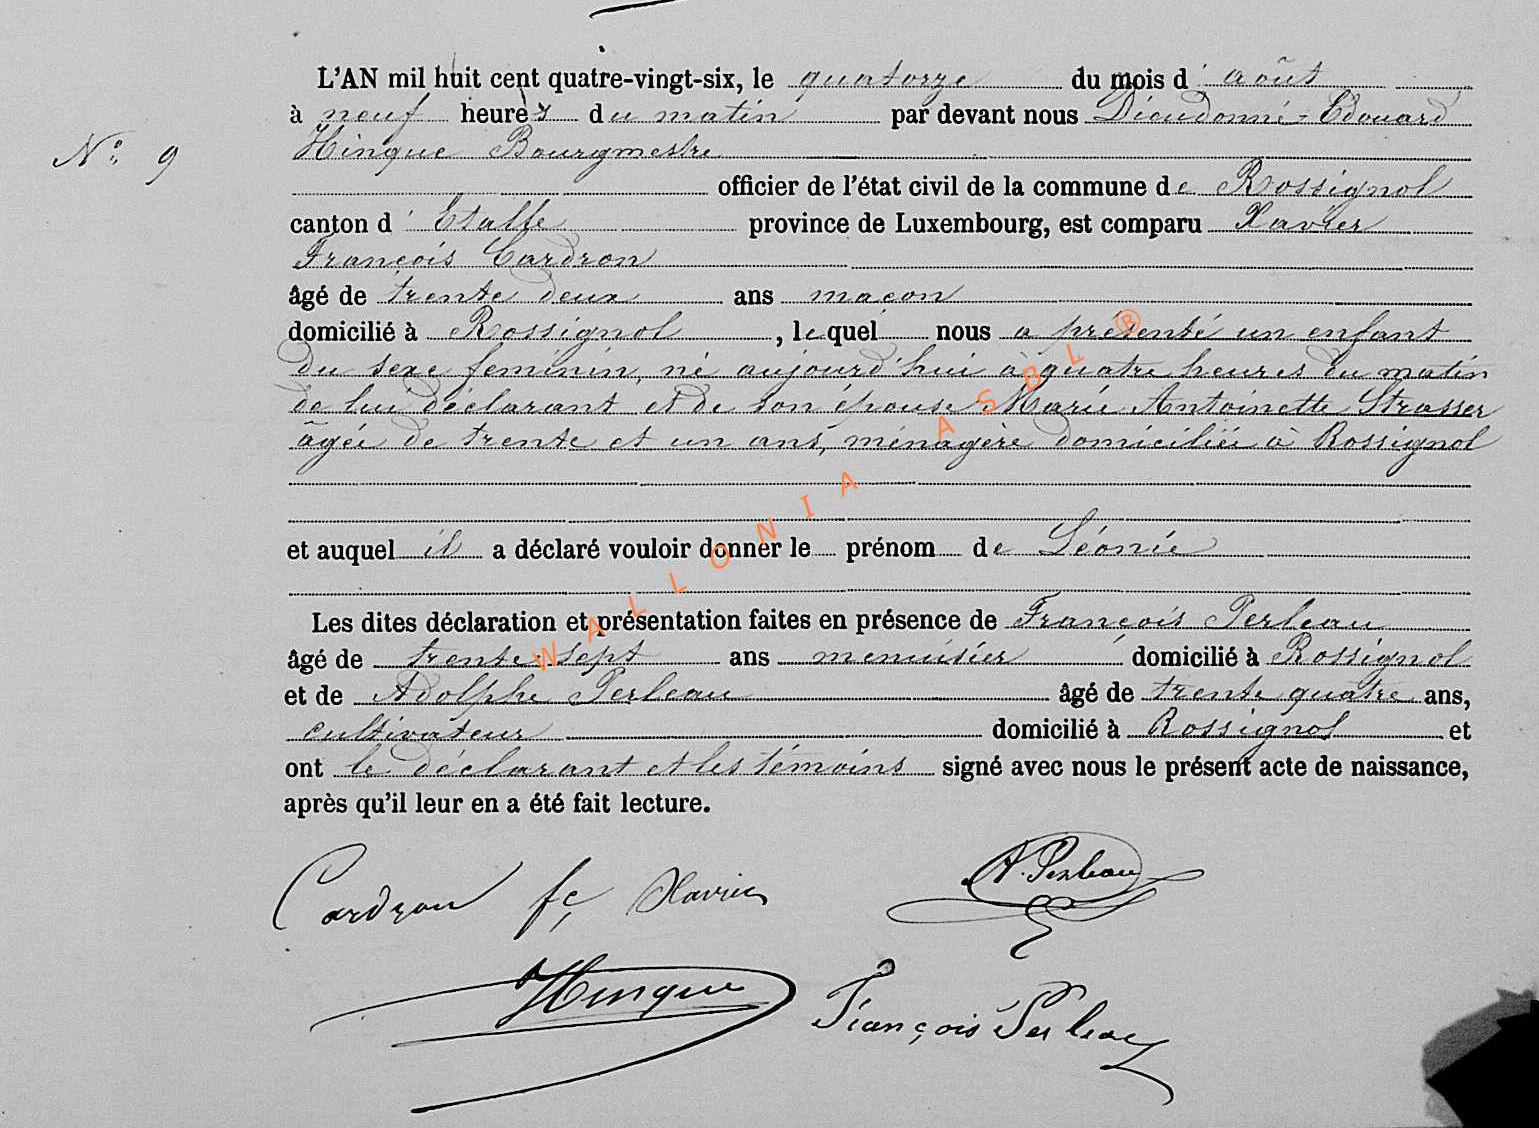 L'AN mil huit cent quatre-vingt-six, le quatorze du mois d' août
à neuf heures du matin par devant nous Dieudonné-Edouard
Hinque Bourgmestre
N° 9
officier de l'état civil de la commune de Rossignol
canton d' Etalle province de Luxembourg, est comparu Xavier
François Cardron
âgé de trente deux ans maçon
domicilié à Rossignol, lequel nous a présenté un enfant
du sexe féminin, né aujourd'hui à quatre heures du matin
de lui déclarant et de son épouse Marie Antoinette Strasser
âgée de trente et un ans, ménagère domiciliée à Rossignol
et auquel il a déclaré vouloir donner le prénom de Léonie
Les dites déclaration et présentation faites en présence de François Perleau
âgé de trente-sept ans menuisier domicilié à Rossignol
et de Adolphe Perleau âgé de trente quatre ans,
cultivateur domicilié à Rossignol et
ont le déclarant et les témoins signé avec nous le présent acte de naissance,
après qu'il leur en a été fait lecture.
Cardron fç Xavier
A. Perleau
Hinque
François Perleau
WALLONIA ASBL ®